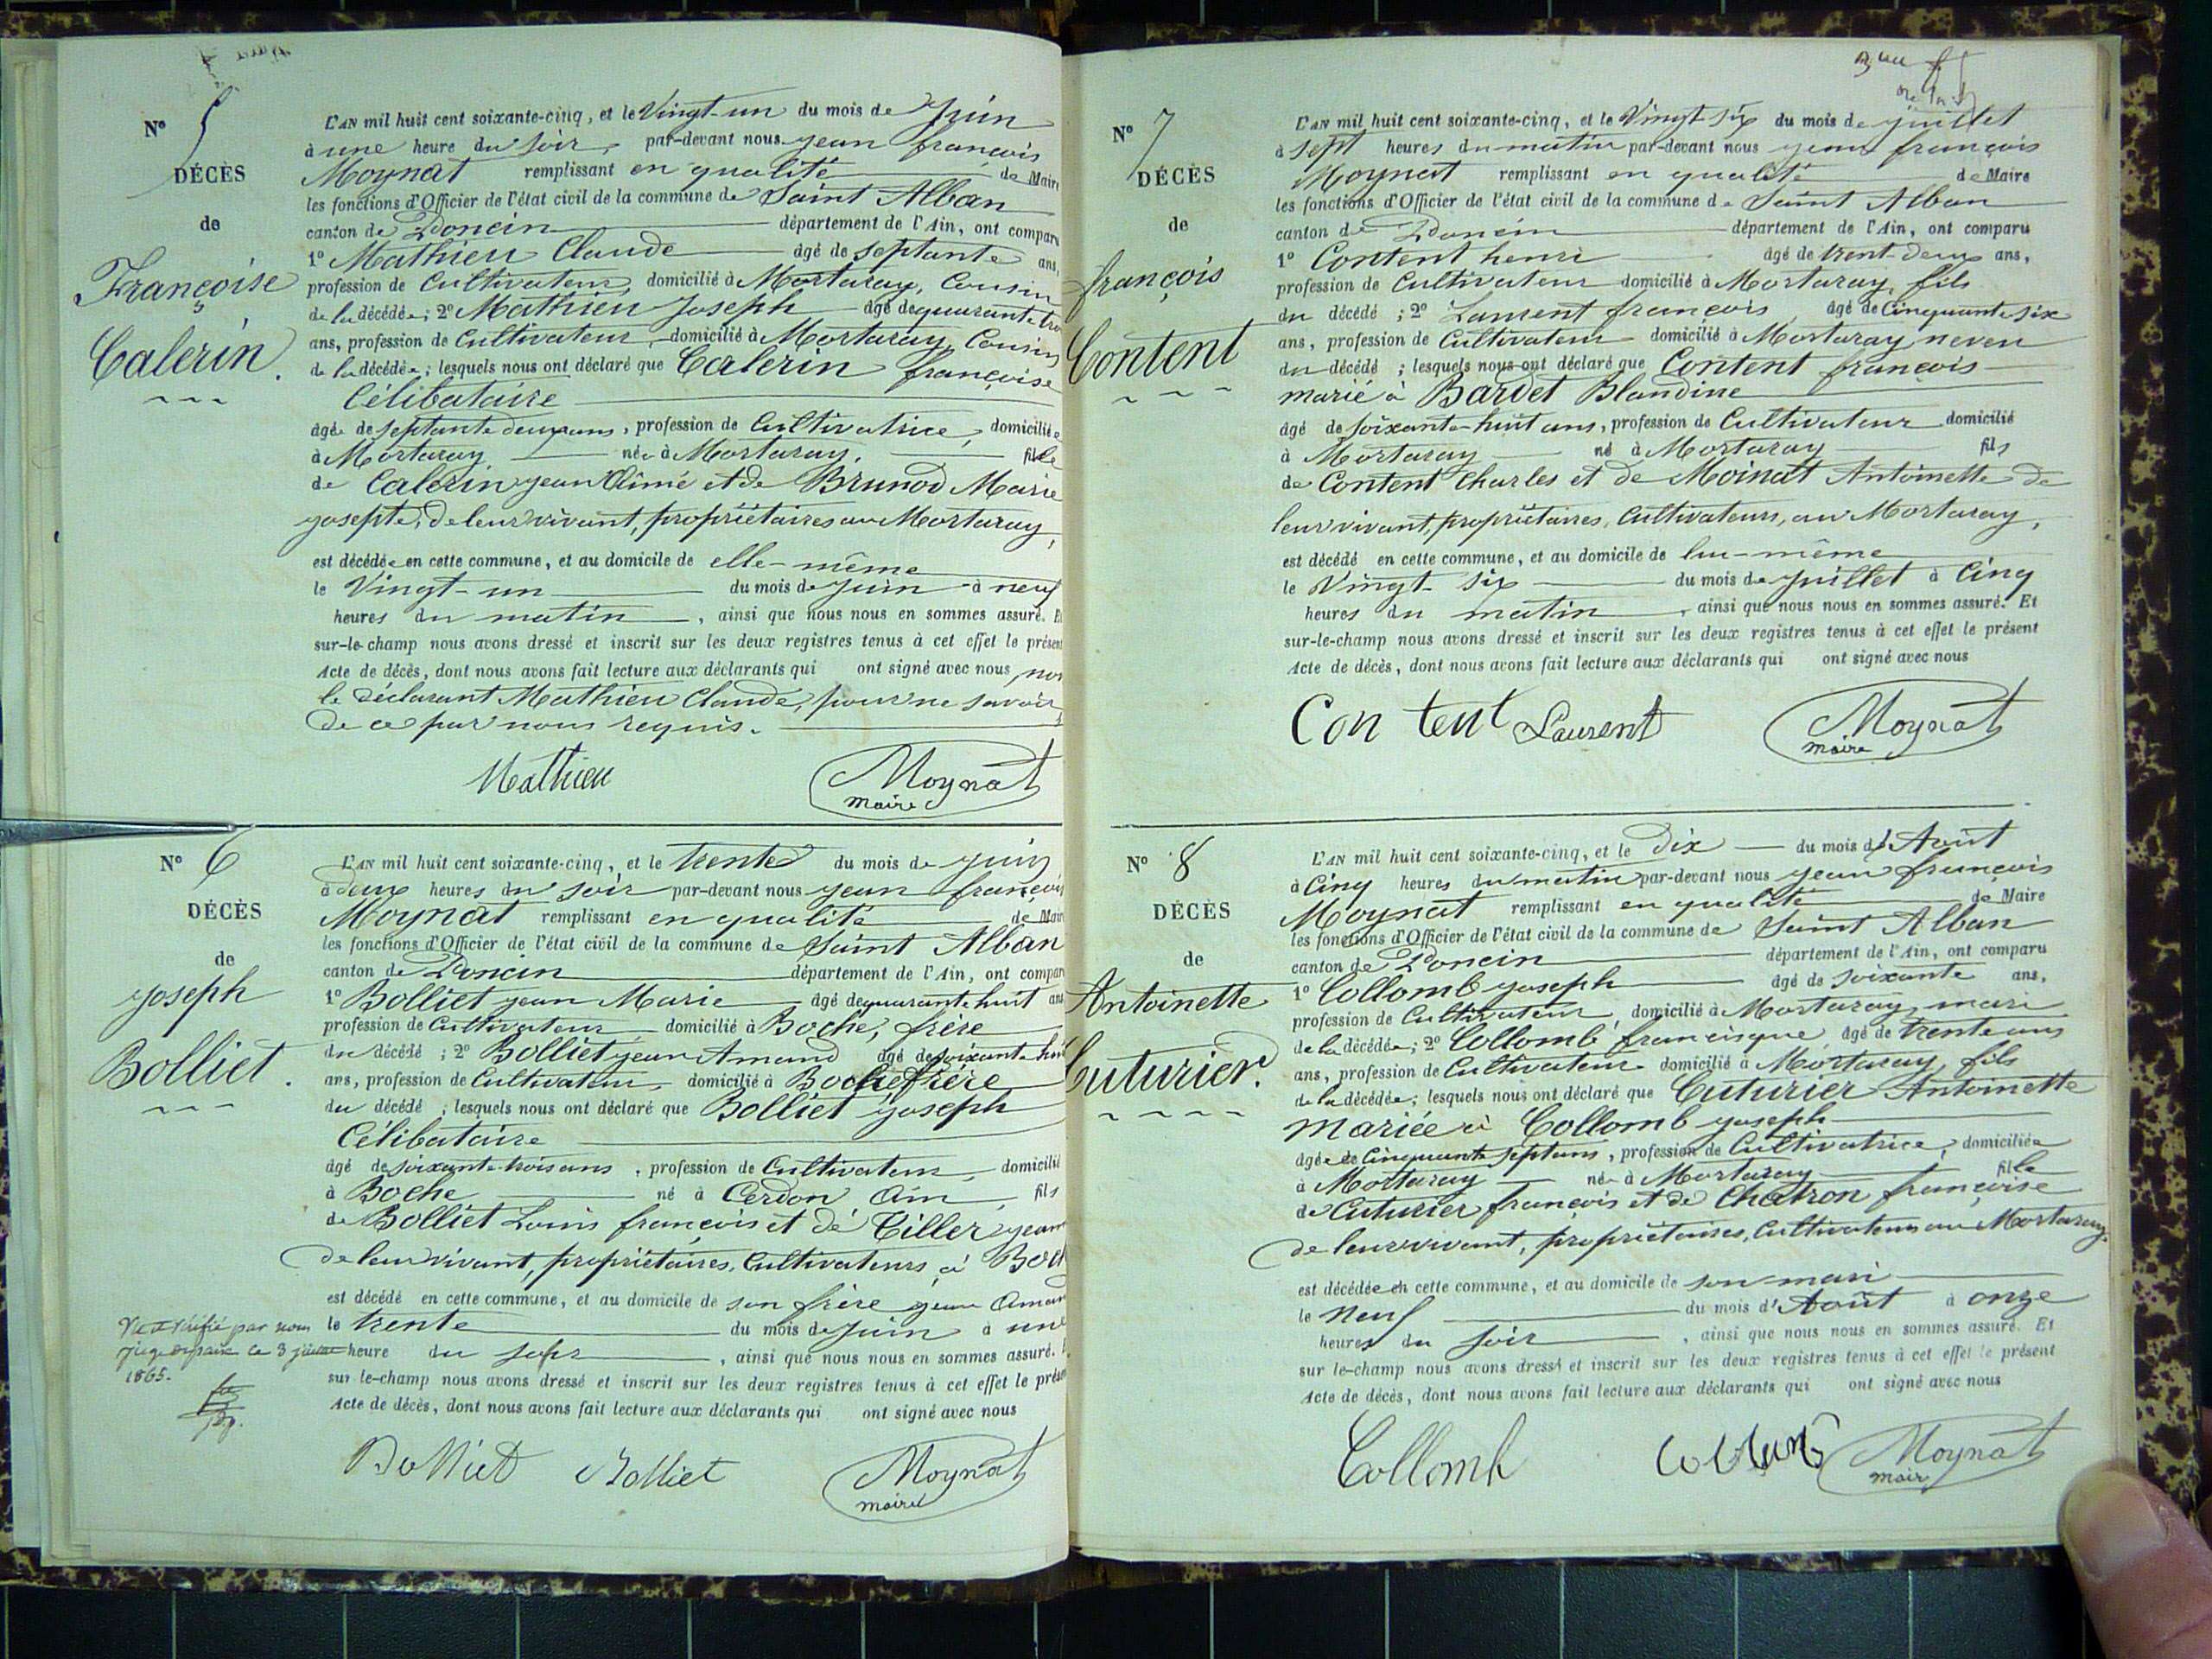 N° 5
DÉCÈS
de
Françoise
Calerin.
L'AN mil huit cent soixante-cinq, et le Vingt-un du mois de Juin
à une heure du soir, par-devant nous jean françois
Moynat remplissant en qualité de Maire
les fonctions d'Officier de l'état civil de la commune de Saint Alban
canton de Poncin département de l'Ain, ont comparu
1° Mathieu Claude âgé de septante ans,
profession de Cultivateur, domicilié à Mortaray, Cousin
de la décédée; 2° Mathieu Joseph âgé de quarante tro
ans, profession de Cultivateur, domicilié à Mortaray, Cousin
de la décédée; lesquels nous ont déclaré que Calerin françoise
Célibataire
âgée de septante deux ans, profession de Cultivatrice, domiciliée
à Mortaray née à Mortaray, fille
de Calerin jean Aimé et de Brunod Marie
josepte, de leur vivant, propriétaires au Mortaray,
est décédée en cette commune, et au domicile de elle-même
le Vingt-un du mois de Juin à neuf
heures du matin, ainsi que nous nous en sommes assuré. Et
sur-le-champ nous avons dressé et inscrit sur les deux registres tenus à cet effet le présent
Acte de décès, dont nous avons fait lecture aux déclarants qui ont signé avec nous, non
le déclarant Mathieu Claude, pour ne savoir
de ce par nous requis.
Mathieu Moynat
maire
N° 6
DÉCÈS
de
joseph
Bolliet.
L'AN mil huit cent soixante-cinq, et le trente du mois de juin
à deux heures du soir par-devant nous jean françois
Moynat remplissant en qualité de Maire
les fonctions d'Officier de l'état civil de la commune de Saint Alban
canton de Poncin département de l'Ain, ont comparu
1° Bolliet jean Marie âgé de quarante huit ans
profession de Cultivateur domicilié à Boche, frère
du décédé; 2° Bolliet jean Amand âgé de soixante huit
ans, profession de Cultivateur, domicilié à Boche frère
du décédé; lesquels nous ont déclaré que Bolliet joseph
Célibataire
âgé de soixante-trois ans, profession de Cultivateur, domicilié
à Boche né à Cerdon Ain, fils
de Bolliet Louis françois et de Tiller jean
de leur vivant, propriétaires, Cultivateurs, à Boch
est décédé en cette commune, et au domicile de son frère jean Aman
le trente du mois de Juin à une
heure du soir, ainsi que nous nous en sommes assuré. E
sur-le-champ nous avons dressé et inscrit sur les deux registres tenus à cet effet le présen
Acte de décès, dont nous avons fait lecture aux déclarants qui ont signé avec nous
Vu et vérifié par nous
juge de paix ce 3 juillet
1865.
Bolliet Bolliet Moynat
maire
N° 7
DÉCÈS
de
françois
Content
L'AN mil huit cent soixante-cinq, et le Vingt-six du mois de juillet
à sept heures du matin par-devant nous jean françois
Moynat remplissant en qualité de Maire
les fonctions d'Officier de l'état civil de la commune de Saint Alban
canton de Poncin département de l'Ain, ont comparu
1° Content henri âgé de trent-deux ans,
profession de Cultivateur domicilié à Mortaray, fils
du décédé; 2° Laurent françois, âgé de Cinquante-six
ans, profession de Cultivateur domicilié à Mortaray neveu
du décédé; lesquels nous ont déclaré que Content françois
marié à Bardet Blandine
âgé de soixante-huit ans, profession de Cultivateur domicilié
à Mortaray né à Mortaray fils
de Content Charles et de Moinat Antoinette de
leur vivant, propriétaires, Cultivateurs, au Mortaray,
est décédé en cette commune, et au domicile de lui-même
le Vingt-six du mois de juillet à Cinq
heures du matin, ainsi que nous nous en sommes assuré. Et
sur-le-champ nous avons dressé et inscrit sur les deux registres tenus à cet effet le présent
Acte de décès, dont nous avons fait lecture aux déclarants qui ont signé avec nous
Con tent Laurent Moynat
maire
N° 8
DÉCÈS
de
Antoinette
Cuturier.
L'AN mil huit cent soixante-cinq, et le Dix du mois d'Août
à Cinq heures du matin par-devant nous jean françois
Moynat remplissant en qualité de Maire
les fonctions d'Officier de l'état civil de la commune de Saint Alban
canton de Poncin département de l'Ain, ont comparu
1° Collomb joseph âgé de soixante ans,
profession de Cultivateur, domicilié à Mortaray, mari
de la décédée; 2° Collomb francisque, âgé de trente ans,
ans, profession de Cultivateur domicilié à Mortaray, fils
de la décédée; lesquels nous ont déclaré que Cuturier Antoinette
mariée à Collomb joseph
âgée de Cinquante sept ans, profession de Cultivatrice, domiciliée
à Mortaray née à Mortaray fille
de Cuturier françois et de Chatron françoise
de leur vivant, propriétaires, Cultivateurs au Mortaray.
est décédée en cette commune, et au domicile de son mari
le Neuf du mois d'Août à onze
heures du soir, ainsi que nous nous en sommes assuré. Et
sur le-champ nous avons dressé et inscrit sur les deux registres tenus à cet effet le présent
Acte de décès, dont nous avons fait lecture aux déclarants qui ont signé avec nous
Collomb Collomb Moynat
maire